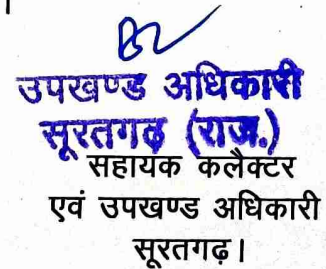 उपखण्ड अधिकारी
सूरतगढ़ (राज.)
सहायक कलैक्टर
एवं उपखण्ड अधिकारी
सूरतगढ़।